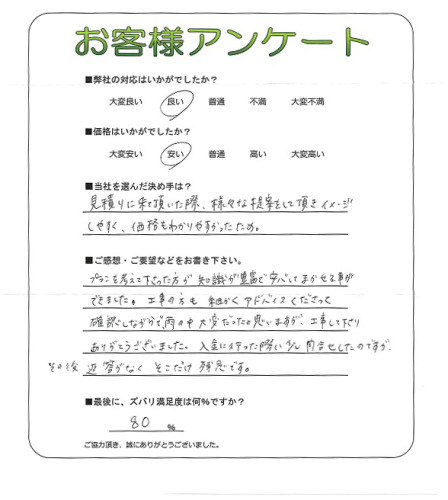 お客様アンケート
■弊社の対応はいかがでしたか?
大変良い 良い 普通 不満 大変不満
■価格はいかがでしたか?
大変安い 安い 普通 高い 大変高い
■当社を選んだ決め手は?
見積りに来て頂いた際、様々な提案をして頂きイメージ
しやすく、価格もわかりやすかったため。
■ご感想・ご要望などをお書き下さい。
プランを考えて下さった方が知識が豊富で安心してまかせる事が
できました。工事の方も細かくアドバイスくださって
確認しながらで、雨の中大変だったと思いますが、工事して下さり
ありがとうございました。入金に行った際に少し問合せしたのですが、
その後 返答がなく そこだけ残念です。
■最後に、ズバリ満足度は何%ですか?
80 %
ご協力頂き、誠にありがとうございました。